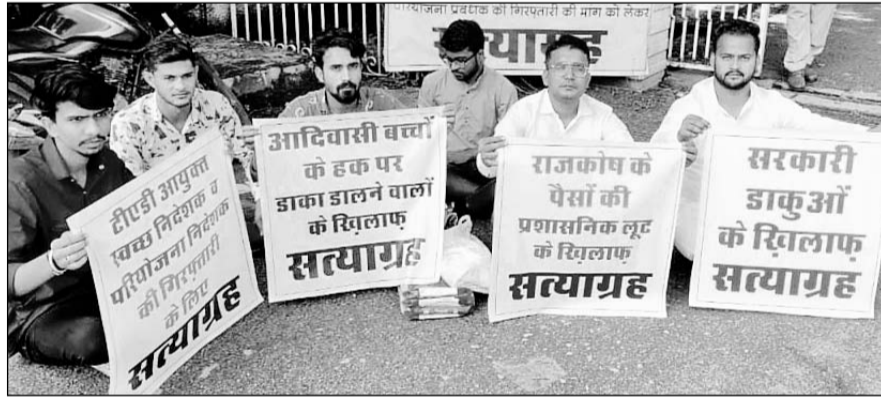 परियोजना प्रबंधक की गिरफ्तारी की मांग को लेकर
सत्याग्रह
टीएडी आयुक्त
स्वच्छ निदेशक व
परियोजना निदेशक
की गिरफ़्तारी
के लिए
सत्याग्रह
आदिवासी बच्चों
के हक पर
डाका डालने वालों
के ख़िलाफ़
सत्याग्रह
राजकोष के
पैसों की
प्रशासनिक लूट
के ख़िलाफ़
सत्याग्रह
सरकारी
डाकुओं
के ख़िलाफ़
सत्याग्रह